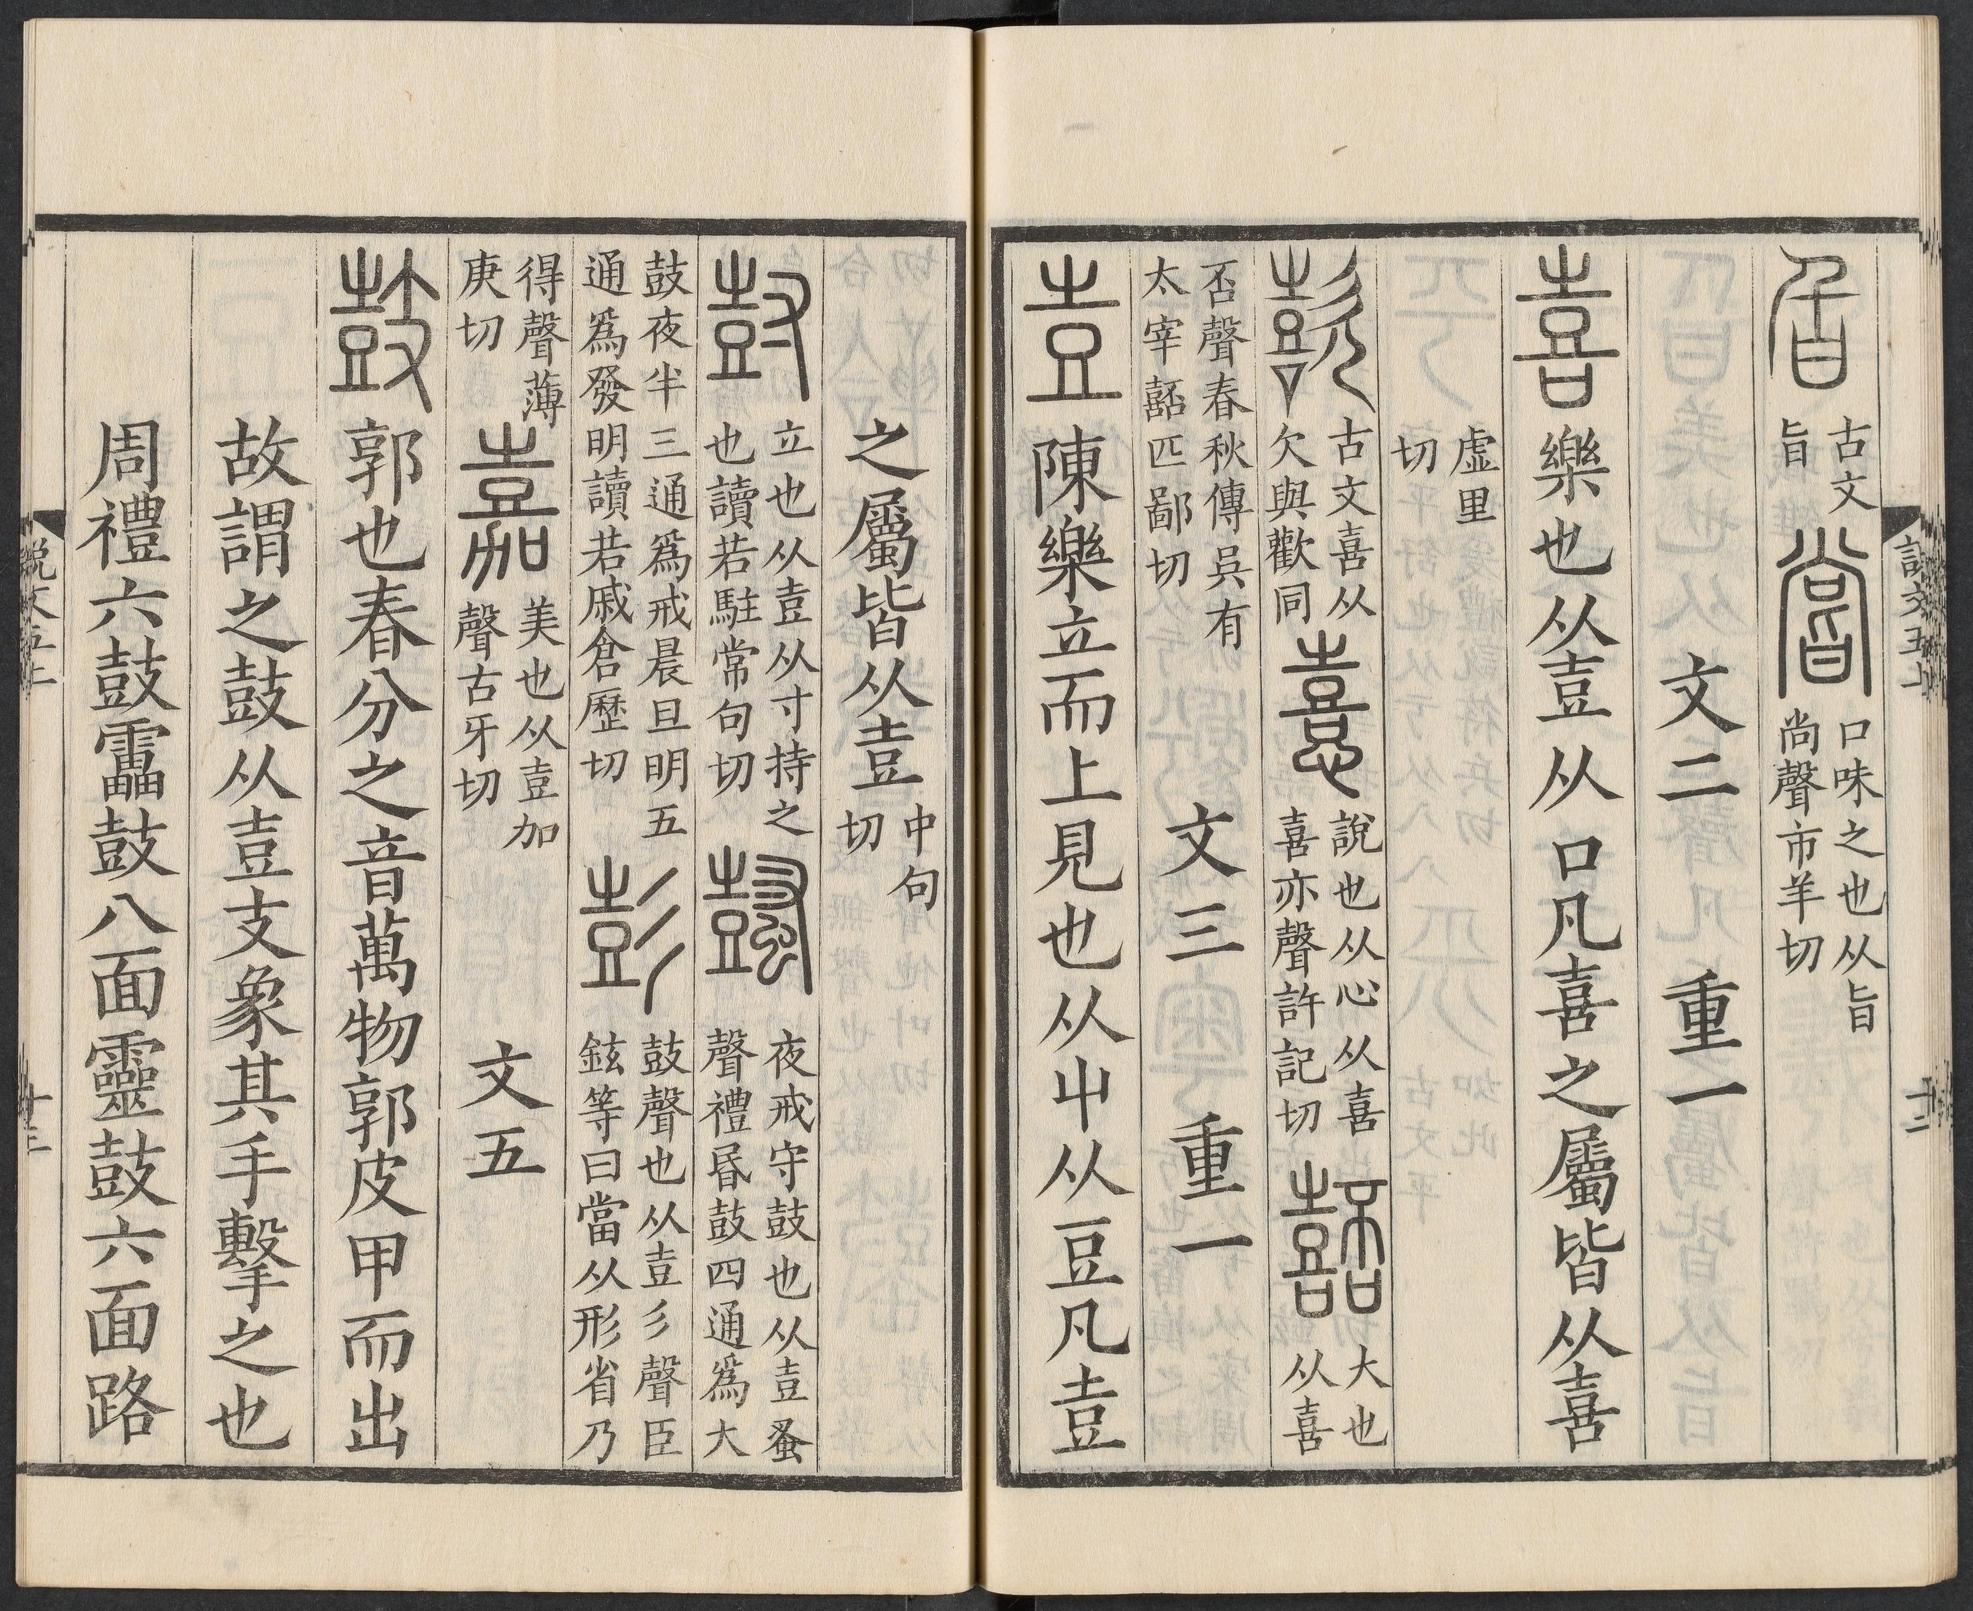 古文旨嘗口味之也从旨尚聲市羊切
文二　重一
喜樂也从壴从口凡喜之屬皆从喜
虛里切
歖古文喜从欠與歡同憙說也从心从喜喜亦聲許記切嚭大也从喜
否聲春秋傳吳有太宰嚭匹鄙切　文三　重一
壴陳樂立而上見也从屮从豆凡壴
之屬皆从壴中句切
尌立也从壴从寸持之也讀若駐常句切夜戒守鼓也从壴蚤聲禮昬鼓四通爲大
鼓夜半三通爲戒晨旦明五通爲發明讀若戚倉歷切彭鼓聲也从壴彡聲臣鉉等曰當从形省乃
得聲薄庚切嘉美也从壴加聲古牙切　文五
鼓郭也春分之音萬物郭皮甲而出
故謂之鼓从壴支象其手擊之也
周禮六鼓靁鼓八面靈鼓六面路
說文五上　十三